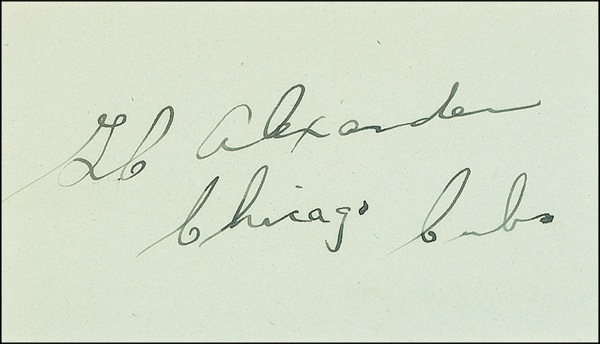 GC Alexander
Chicago Cubs